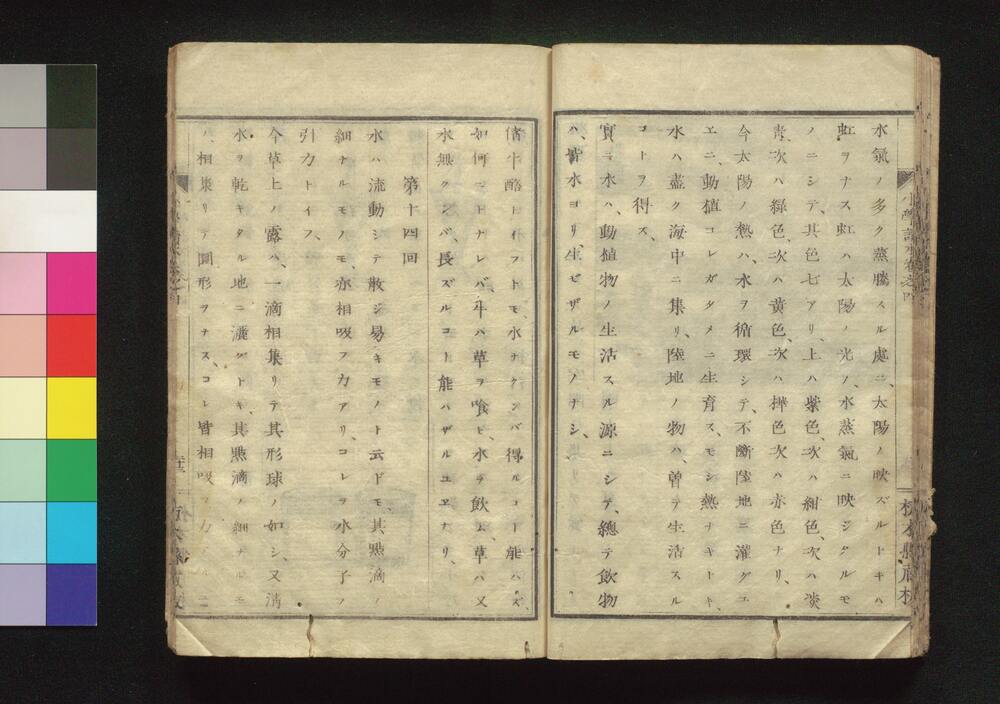 水氣ノ多ク蒸騰スル處ニ、太陽ノ映ズルトキハ
虹ヲナス虹ハ太陽ノ光ノ、水蒸氣ニ映ジタルモ
ノニシテ、其色七アリ、上ハ紫色、次ハ紺色、次ハ淡
靑、次ハ綠色、次ハ黄色、次ハ樺色次ハ赤色ナリ、
今太陽ノ熱ハ、水ヲ循環シテ、不斷陸地ニ灌グユ
エニ、動植コレガタメニ生育ス、モシ熱ナキトキ、
水ハ盡ク海中ニ集リ、陸地ノ物ハ、曽テ生活スル
コトヲ得ズ、
實ニ水ハ、動植物ノ生活スル源ニシテ、總テ飮物
ハ、皆水ヨリ、生ゼザルモノナシ、
小學讀本卷之四
栃木縣
牛酪トイフトモ、水ナクンバ得ルコト能ハズ、
如何ニトナレバ、牛ハ草ヲ喰ヒ、水ヲ飮ム、草ハ又
水無クンバ、長ズルコト能ハザルユヱナリ、
第十四回
水ハ流動シテ散ジ易キモノト云ドモ、其㸃滴ノ
細ナルモノモ、亦相吸フ力アリ、コレヲ水分子ノ
引力トイフ、
今草上ノ露ハ、一滴相集リテ其形球ノ如シ、又淸
水ヲ乾キタル地ニ灑グトキ、其㸃滴ノ細ナルモ
ノ、相集リテ圓形ヲナス、コレ皆相吸フ力